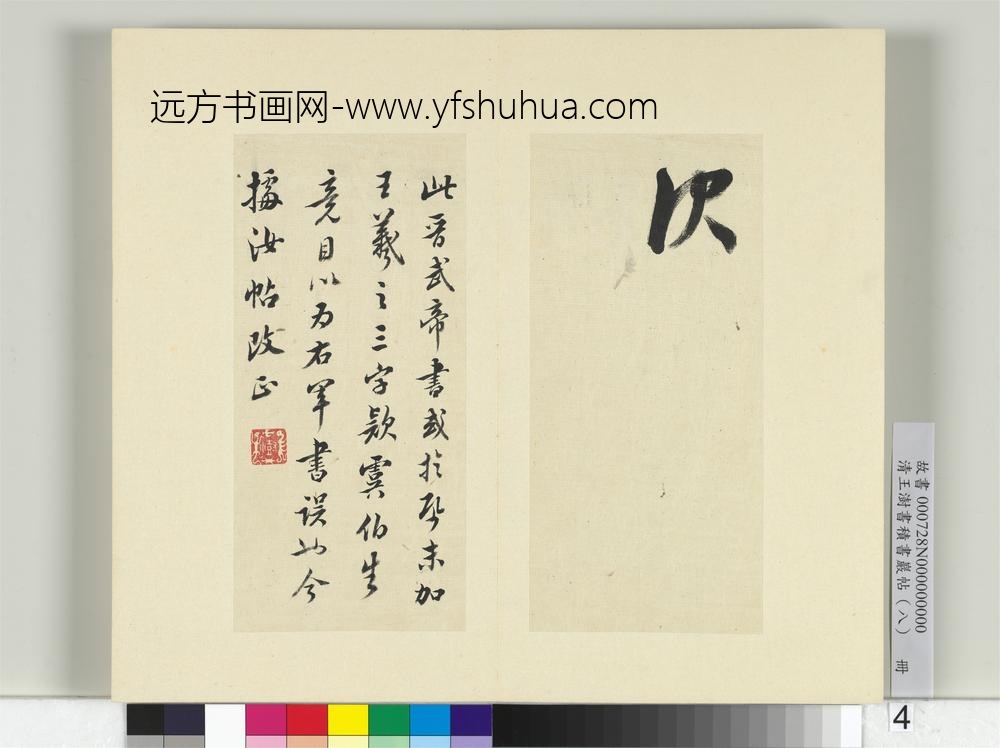 远方书画网-www.yfshuhua.com
此晋武帝書或扵啟末加
王羲之三字欵虞伯生
竟目以为右军書误也今
據汝帖改正
故書000728N000000000
清王澍書積書巖帖(八) 冊
4